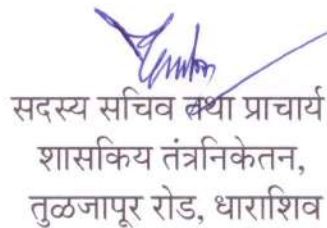 सदस्य सचिव तथा प्राचार्य
शासकिय तंत्रनिकेतन,
तुळजापूर रोड, धाराशिव